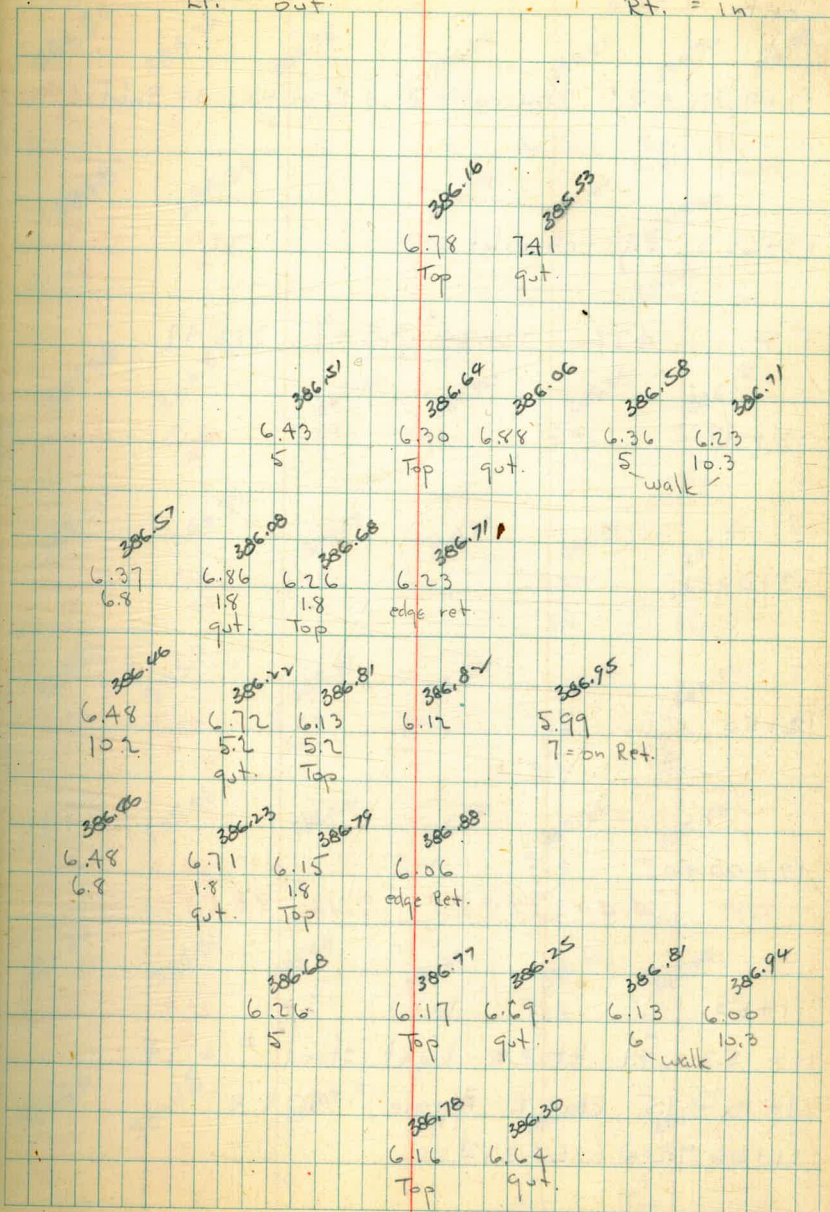 Lt. out. Rt. = in
386.16 385.53
6.78 7.41
Top gut.
386.51 386.64 386.06 386.58 386.71
6.43 6.30 6.88 6.36 6.23
5 Top gut. 5 10.3
walk
386.57 386.08 386.68 386.71
6.37 6.86 6.26 6.23
6.8 1.8 1.8 edge ret.
gut. Top
386.46 386.22 386.81 386.82 386.95
6.48 6.72 6.13 6.12 5.99
10.2 5.2 5.2 7 = on Ret.
gut. Top
386.46 386.23 386.79 386.88
6.48 6.71 6.15 6.06
6.8 1.8 1.8 edge Ret.
gut. Top
386.68 386.77 386.25 386.81 386.94
6.26 6.17 6.69 6.13 6.00
5 Top gut. 6 10.3
walk
386.78 386.30
6.16 6.64
Top gut.